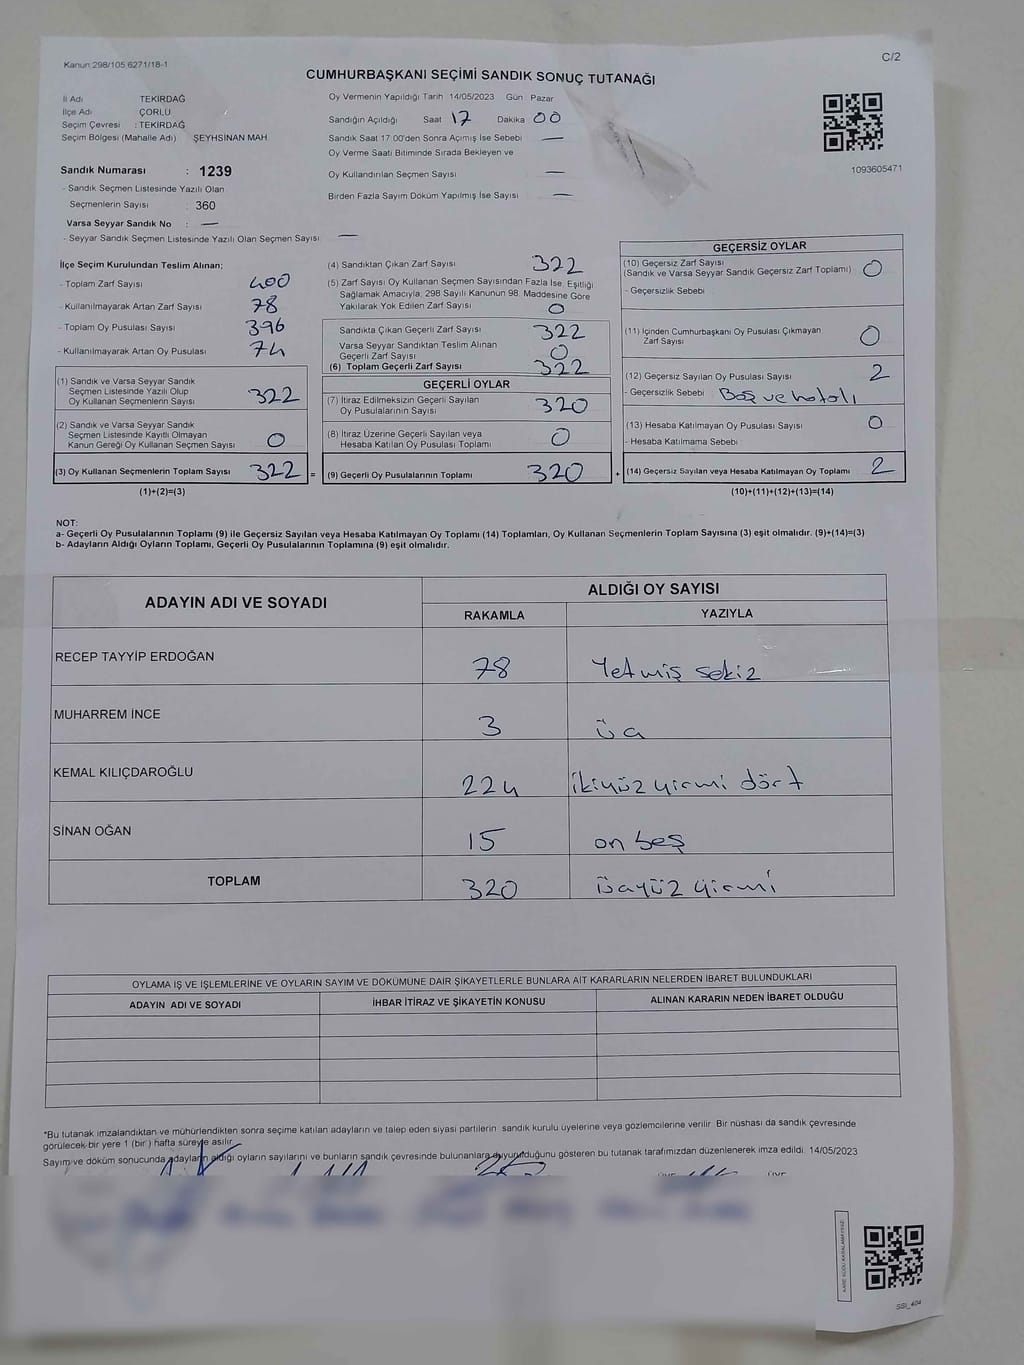 Kanun:298/105 6271/18-1
C/2
CUMHURBAŞKANI SEÇİMİ SANDIK SONUÇ TUTANAĞI
İl Adı TEKİRDAĞ
İlçe Adı ÇORLU
Seçim Çevresi : TEKİRDAĞ
Seçim Bölgesi (Mahalle Adı) ŞEYHSİNAN MAH.
Oy Vermenin Yapıldığı Tarih 14/05/2023 Gün Pazar
Sandığın Açıldığı Saat 17 Dakika 00
Sandık Saat 17:00'den Sonra Açımış İse Sebebi —
Oy Verme Saati Bitiminde Sırada Bekleyen ve
Oy Kullandırılan Seçmen Sayısı —
Birden Fazla Sayım Döküm Yapılmış İse Sayısı —
1093605471
Sandık Numarası : 1239
- Sandık Seçmen Listesinde Yazılı Olan
Seçmenlerin Sayısı : 360
Varsa Seyyar Sandık No : —
- Seyyar Sandık Seçmen Listesinde Yazılı Olan Seçmen Sayısı —
İlçe Seçim Kurulundan Teslim Alınan;
- Toplam Zarf Sayısı 400
- Kullanılmayarak Artan Zarf Sayısı 78
- Toplam Oy Pusulası Sayısı 396
- Kullanılmayarak Artan Oy Pusulası 74
(1) Sandık ve Varsa Seyyar Sandık
Seçmen Listesinde Yazılı Olup
Oy Kullanan Seçmenlerin Sayısı 322
(2) Sandık ve Varsa Seyyar Sandık
Seçmen Listesinde Kayıtlı Olmayan
Kanun Gereği Oy Kullanan Seçmen Sayısı 0
(3) Oy Kullanan Seçmenlerin Toplam Sayısı 322 =
(1)+(2)=(3)
(4) Sandıktan Çıkan Zarf Sayısı 322
(5) Zarf Sayısı Oy Kullanan Seçmen Sayısından Fazla İse, Eşitliği
Sağlamak Amacıyla, 298 Sayılı Kanunun 98. Maddesine Göre
Yakılarak Yok Edilen Zarf Sayısı 0
Sandıkta Çıkan Geçerli Zarf Sayısı 322
Varsa Seyyar Sandıktan Teslim Alınan
Geçerli Zarf Sayısı 0
(6) Toplam Geçerli Zarf Sayısı 322
GEÇERLİ OYLAR
(7) İtiraz Edilmeksizin Geçerli Sayılan
Oy Pusulalarının Sayısı 320
(8) İtiraz Üzerine Geçerli Sayılan veya
Hesaba Katılan Oy Pusulası Toplamı 0
(9) Geçerli Oy Pusulalarının Toplamı 320 +
GEÇERSİZ OYLAR
(10) Geçersiz Zarf Sayısı
(Sandık ve Varsa Seyyar Sandık Geçersiz Zarf Toplamı) 0
- Geçersizlik Sebebi
(11) İçinden Cumhurbaşkanı Oy Pusulası Çıkmayan
Zarf Sayısı 0
(12) Geçersiz Sayılan Oy Pusulası Sayısı 2
- Geçersizlik Sebebi Boş ve hatalı
(13) Hesaba Katılmayan Oy Pusulası Sayısı 0
- Hesaba Katılmama Sebebi
(14) Geçersiz Sayılan veya Hesaba Katılmayan Oy Toplamı 2
(10)+(11)+(12)+(13)=(14)
NOT:
a- Geçerli Oy Pusulalarının Toplamı (9) ile Geçersiz Sayılan veya Hesaba Katılmayan Oy Toplamı (14) Toplamları, Oy Kullanan Seçmenlerin Toplam Sayısına (3) eşit olmalıdır. (9)+(14)=(3)
b- Adayların Aldığı Oyların Toplamı, Geçerli Oy Pusulalarının Toplamına (9) eşit olmalıdır.
ADAYIN ADI VE SOYADI
ALDIĞI OY SAYISI
RAKAMLA YAZIYLA
RECEP TAYYİP ERDOĞAN 78 Yetmiş sekiz
MUHARREM İNCE 3 üç
KEMAL KILIÇDAROĞLU 224 ikiyüz yirmi dört
SİNAN OĞAN 15 on beş
TOPLAM 320 üçyüz yirmi
OYLAMA İŞ VE İŞLEMLERİNE VE OYLARIN SAYIM VE DÖKÜMÜNE DAİR ŞİKAYETLERLE BUNLARA AİT KARARLARIN NELERDEN İBARET BULUNDUKLARI
ADAYIN ADI VE SOYADI İHBAR İTİRAZ VE ŞİKAYETİN KONUSU ALINAN KARARIN NEDEN İBARET OLDUĞU
*Bu tutanak imzalandıktan ve mühürlendikten sonra seçime katılan adayların ve talep eden siyasi partilerin sandık kurulu üyelerine veya gözlemcilerine verilir. Bir nüshası da sandık çevresinde
görülecek bir yere 1 (bir) hafta süreyle asılır.
Sayım ve döküm sonucunda adayların aldığı oyların sayılarını ve bunların sandık çevresinde bulunanlara duyurulduğunu gösteren bu tutanak tarafımızdan düzenlenerek imza edildi. 14/05/2023
SSİ_404